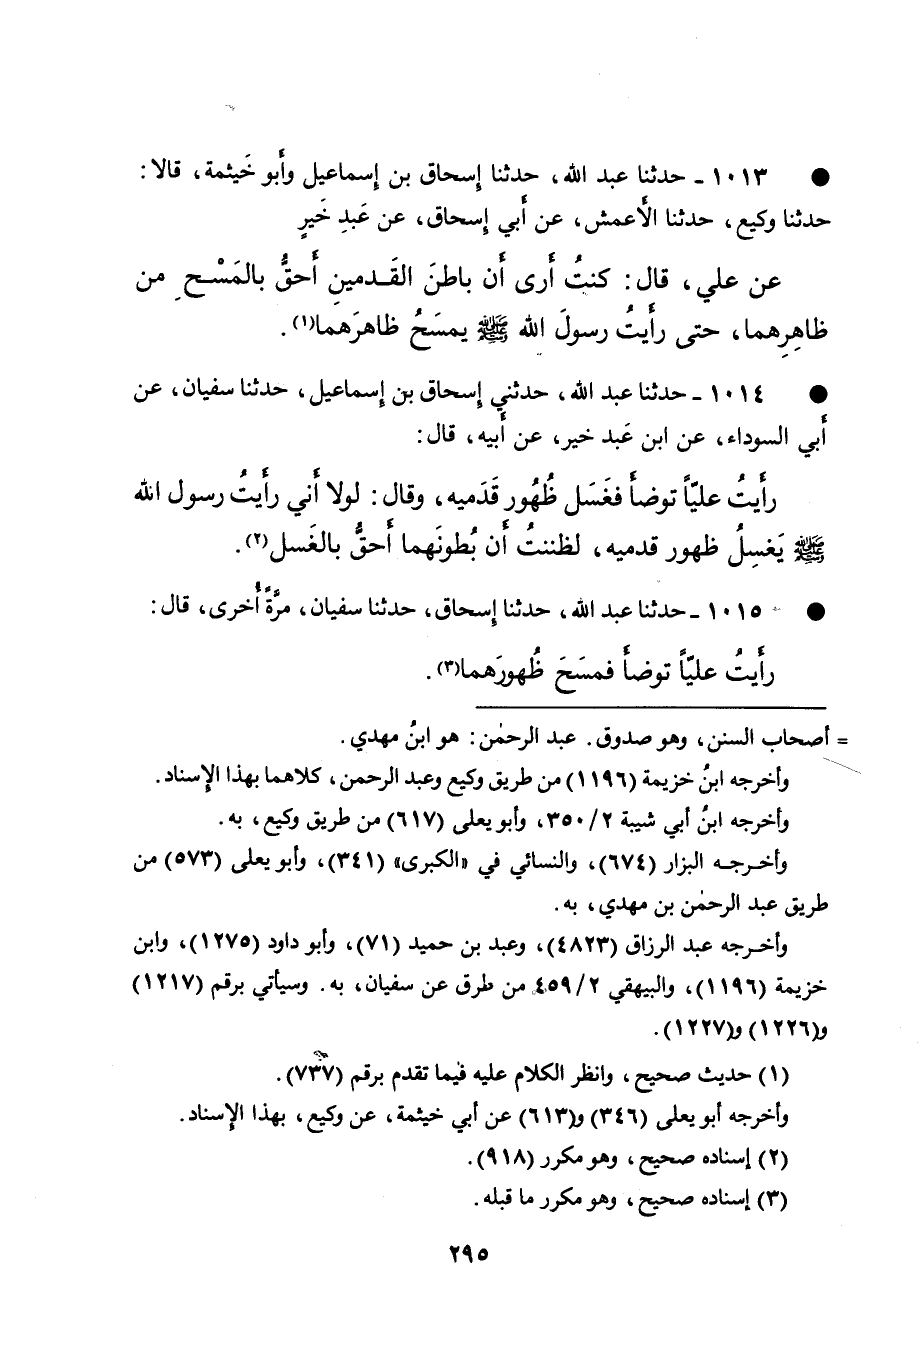 ● ١٠١٣ - حدثنا عبد الله، حدثنا إسحاق بن إسماعيل وأَبو خَيثمة، قالا:
حدثنا وكيع، حدثنا الأَعمش، عن أَبي إسحاق، عن عَبدِ خَيرٍ
عن علي، قال: كنتُ أَرى أَن باطنَ القَدمينِ أَحقُّ بالمَسْحِ من
ظاهِرِهما، حتى رأَيتُ رسولَ الله ﷺ يمسَحُ ظاهرَهما(١).
● ١٠١٤ - حدثنا عبد الله، حدثني إسحاق بن إسماعيل، حدثنا سفيان، عن
أَبي السوداء، عن ابن عَبد خير، عن أَبيه، قال:
رأَيتُ عليّاً توضأَ فغَسَل ظُهُور قَدَميه، وقال: لولا أَني رأَيتُ رسول الله
ﷺ يَغسِلُ ظهور قدميه، لظننتُ أَن بُطونَهما أَحقُّ بالغَسل(٢).
● ١٠١٥ - حدثنا عبد الله، حدثنا إسحاق، حدثنا سفيان، مرَّةً أُخرى، قال:
رأَيتُ عليّاً توضأَ فمسَحَ ظُهورَهما(٣).
= أصحاب السنن، وهو صدوق. عبد الرحمٰن: هو ابنُ مهدي.
وأخرجه ابنُ خزيمة (١١٩٦) من طريق وكيع وعبد الرحمن، كلاهما بهذا الإسناد.
وأخرجه ابنُ أبي شيبة ٣٥٠/٢، وأبو يعلى (٦١٧) من طريق وكيع، به.
وأخرجه البزار (٦٧٤)، والنسائي في «الكبرى» (٣٤١)، وأبو يعلى (٥٧٣) من
طريق عبد الرحمٰن بن مهدي، به.
وأخرجه عبد الرزاق (٤٨٢٣)، وعبد بن حميد (٧١)، وأبو داود (١٢٧٥)، وابن
خزيمة (١١٩٦)، والبيهقي ٤٥٩/٢ من طرق عن سفيان، به. وسيأتي برقم (١٢١٧)
و(١٢٢٦) و(١٢٢٧).
(١) حديث صحيح، وانظر الكلام عليه فيما تقدم برقم (٧٣٧).
وأخرجه أبو يعلى (٣٤٦) و(٦١٣) عن أبي خيثمة، عن وكيع، بهذا الإسناد.
(٢) إسناده صحيح، وهو مكرر (٩١٨).
(٣) إسناده صحيح، وهو مكرر ما قبله.
٢٩٥